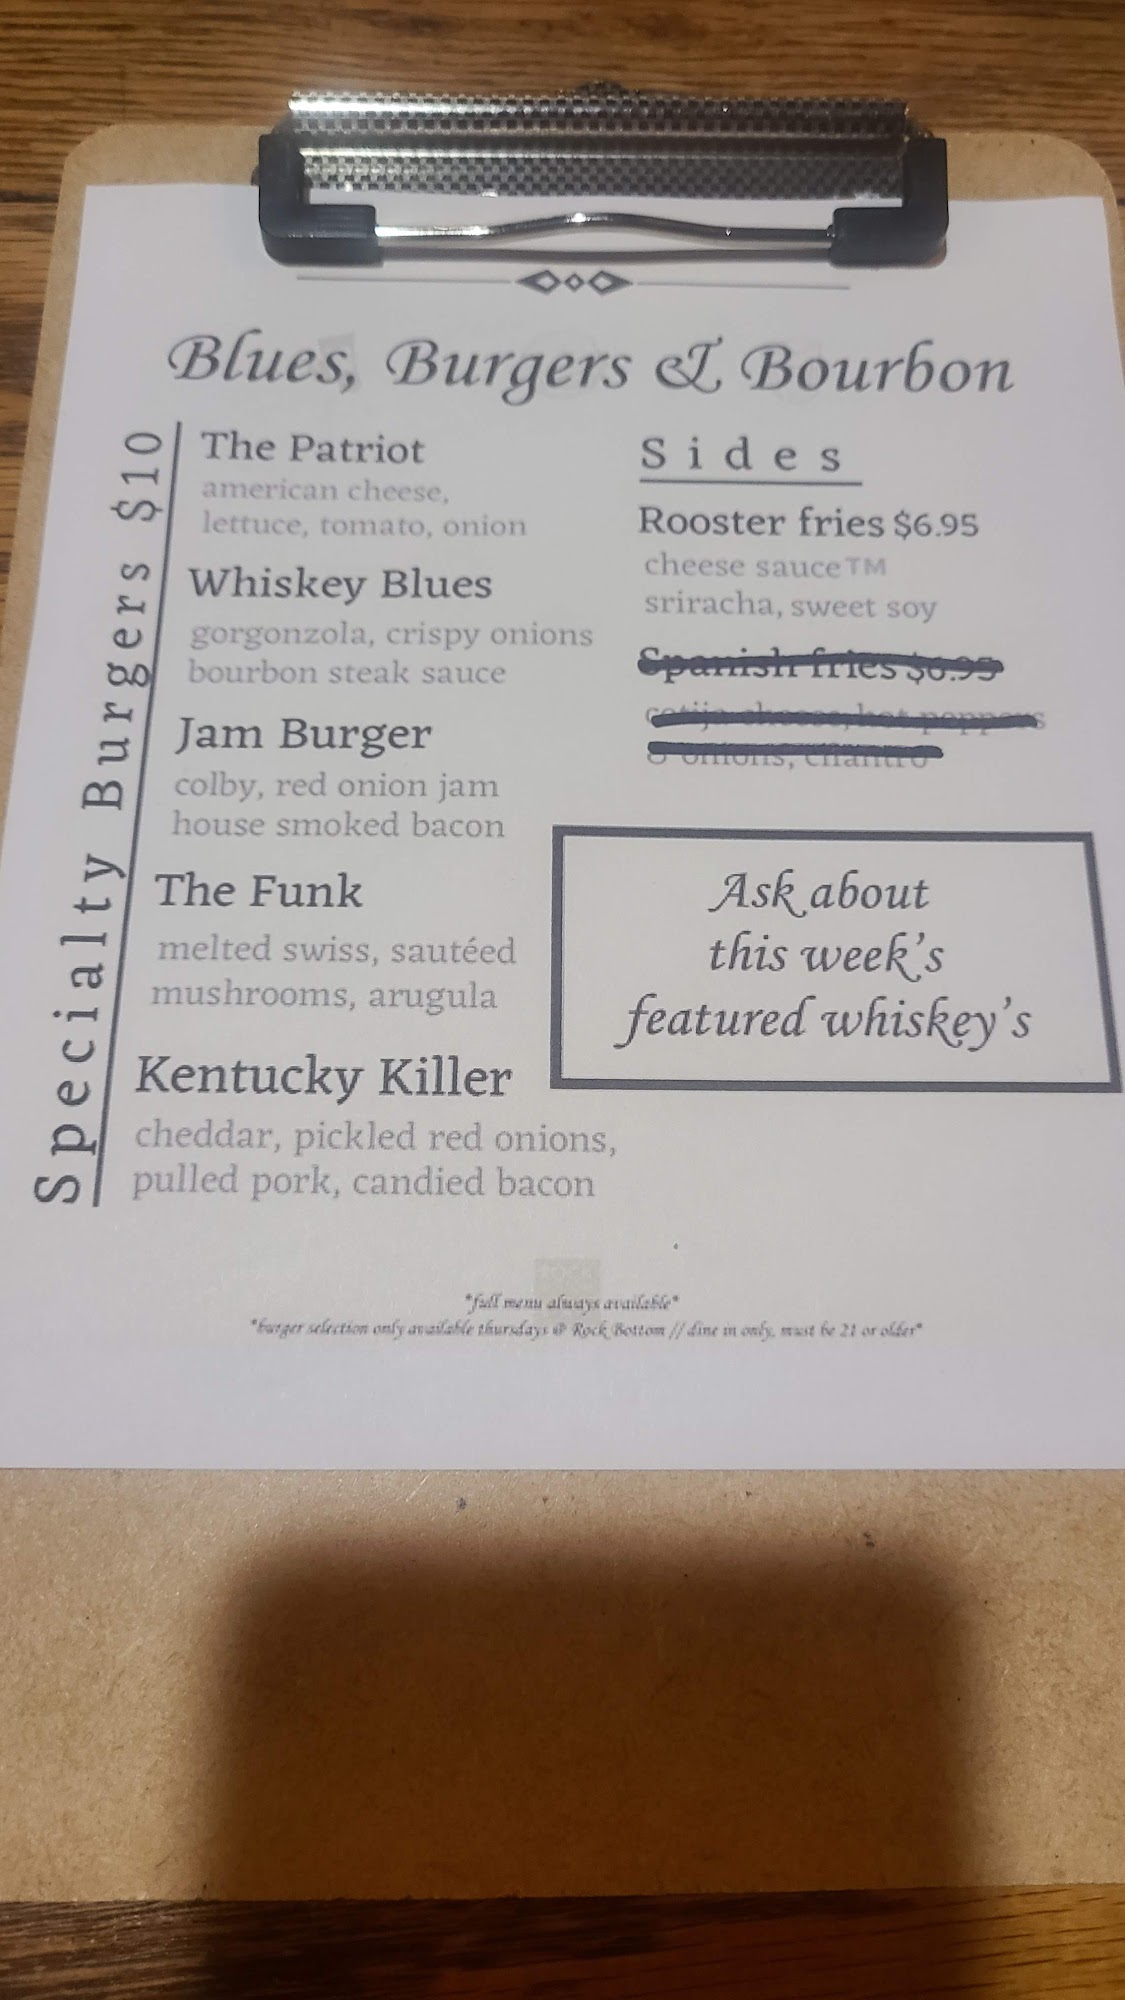 Blues, Burgers & Bourbon
Specialty Burgers $10
The Patriot
american cheese,
lettuce, tomato, onion
Whiskey Blues
gorgonzola, crispy onions
bourbon steak sauce
Jam Burger
colby, red onion jam
house smoked bacon
The Funk
melted swiss, sautéed
mushrooms, arugula
Kentucky Killer
cheddar, pickled red onions,
pulled pork, candied bacon
Sides
Rooster fries $6.95
cheese sauce™
sriracha, sweet soy
Spanish fries $6.95
cotija cheese, hot peppers
onions, cilantro
Ask about
this week's
featured whiskey's
*full menu always available*
*burger selection only available thursdays @ Rock Bottom // dine in only, must be 21 or older*